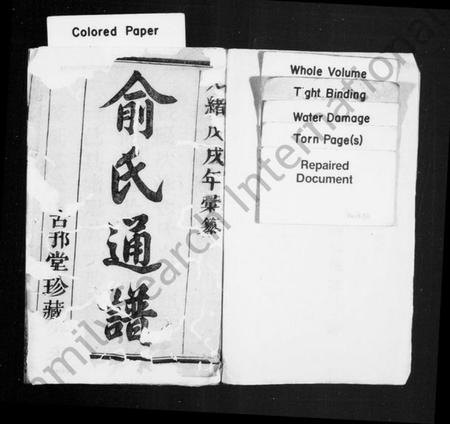 Colored Paper
光緒戊戌年彙纂
俞氏通譜
古邗堂珍藏
Whole Volume
Tight Binding
Water Damage
Torn Page(s)
Repaired
Document
FamilySearch International